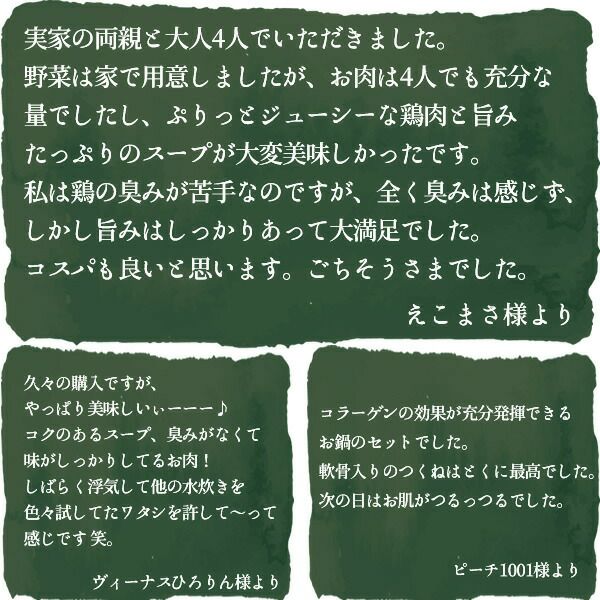 実家の両親と大人4人でいただきました。
野菜は家で用意しましたが、お肉は4人でも充分な
量でしたし、ぷりっとジューシーな鶏肉と旨み
たっぷりのスープが大変美味しかったです。
私は鶏の臭みが苦手なのですが、全く臭みは感じず、
しかし旨みはしっかりあって大満足でした。
コスパも良いと思います。ごちそうさまでした。
えこまさ様より
久々の購入ですが、
やっぱり美味しいぃーーー♪
コクのあるスープ、臭みがなくて
味がしっかりしてるお肉！
しばらく浮気して他の水炊きを
色々試してたワタシを許して〜って
感じです笑。
ヴィーナスひろりん様より
コラーゲンの効果が充分発揮できる
お鍋のセットでした。
軟骨入りのつくねはとくに最高でした。
次の日はお肌がつるっつるでした。
ピーチ1001様より